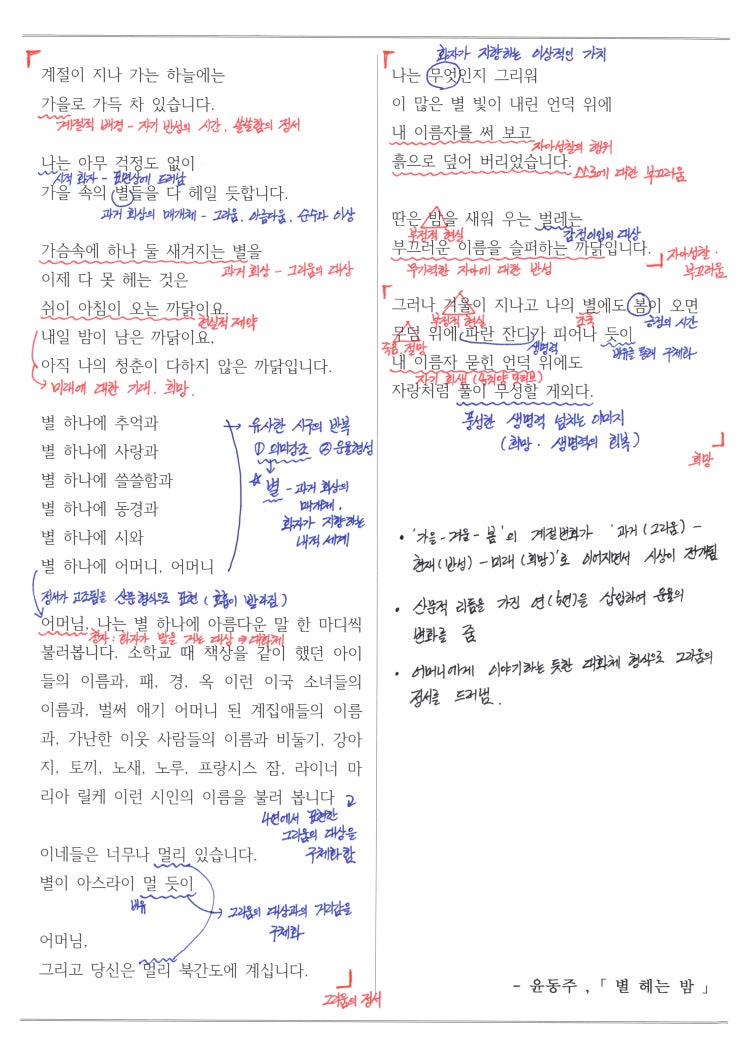 계절이 지나 가는 하늘에는
가을로 가득 차 있습니다.
계절적 배경 - 자기 반성의 시간, 쓸쓸함의 정서
나는 아무 걱정도 없이
시적 화자 - 표면상에 드러남
가을 속의 별들을 다 헤일 듯합니다.
과거 회상의 매개체 - 그리움, 아름다움, 순수와 이상
가슴속에 하나 둘 새겨지는 별을
과거 회상 - 그리움의 대상
이제 다 못 헤는 것은
쉬이 아침이 오는 까닭이요,
현실적 제약
내일 밤이 남은 까닭이요,
아직 나의 청춘이 다하지 않은 까닭입니다.
미래에 대한 기대, 희망.
별 하나에 추억과
별 하나에 사랑과
별 하나에 쓸쓸함과
별 하나에 동경과
별 하나에 시와
별 하나에 어머니, 어머니
→ 유사한 시구의 반복
① 의미강조 ② 운율형성
☆ 별 - 과거 회상의
매개체,
화자가 지향하는
내적 세계
정서가 고조됨을 산문형식으로 표현 (호흡이 빨라짐)
어머님, 나는 별 하나에 아름다운 말 한 마디씩
청자 : 화자가 말을 거는 대상 ⇒ 대화체
불러봅니다. 소학교 때 책상을 같이 했던 아이
들의 이름과, 패, 경, 옥 이런 이국 소녀들의
이름과, 벌써 애기 어머니 된 계집애들의 이름
과, 가난한 이웃 사람들의 이름과 비둘기, 강아
지, 토끼, 노새, 노루, 프랑시스 잠, 라이너 마
리아 릴케 이런 시인의 이름을 불러 봅니다
4연에서 표현한
그리움의 대상을
구체화함
이네들은 너무나 멀리 있습니다.
별이 아스라이 멀 듯이
비유
→ 그리움의 대상과의 거리감을
구체화
어머님,
그리고 당신은 멀리 북간도에 계십니다.
그리움의 정서
화자가 지향하는 이상적인 가치
나는 무엇인지 그리워
이 많은 별 빛이 내린 언덕 위에
내 이름자를 써 보고
자아성찰의 행위
흙으로 덮어 버리었습니다.
스스로에 대한 부끄러움
딴은 밤을 새워 우는 벌레는
부정적 현실
감정이입의 대상
부끄러운 이름을 슬퍼하는 까닭입니다.
무기력한 자아에 대한 반성
자아성찰 ·
부끄러움
그러나 겨울이 지나고 나의 별에도 봄이 오면
부정적 현실
조국
긍정의 시간
무덤 위에 파란 잔디가 피어나 듯이
죽음, 절망
생명력
비유를 통해 구체화
내 이름자 묻힌 언덕 위에도
자기 희생
자랑처럼 풀이 무성할 게외다.
풍성한 생명력 넘치는 이미지
(희망 · 생명력의 회복)
희망
• '가을 - 겨울 - 봄'의 계절변화가 '과거 (그리움) -
현재 (반성) - 미래 (희망)'로 이어지면서 시상이 전개됨
• 산문적 리듬을 가진 연 (5연)을 삽입하여 운율의
변화를 줌
• 어머니에게 이야기하는 듯한 대화체 형식으로 그리움의
정서를 드러냄.
- 윤동주 , 「 별 헤는 밤 」